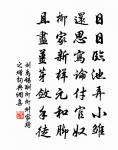 日日臨池弄小雛
還思寫論付官奴
柳家新樣元和腳
且盡薑芽斂手徒
劉禹錫酬柳柳州家雞
之贈